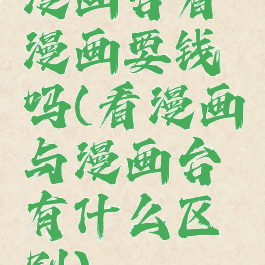 漫画台看
漫画要钱
吗(看漫画
与漫画台
有什么区
别)